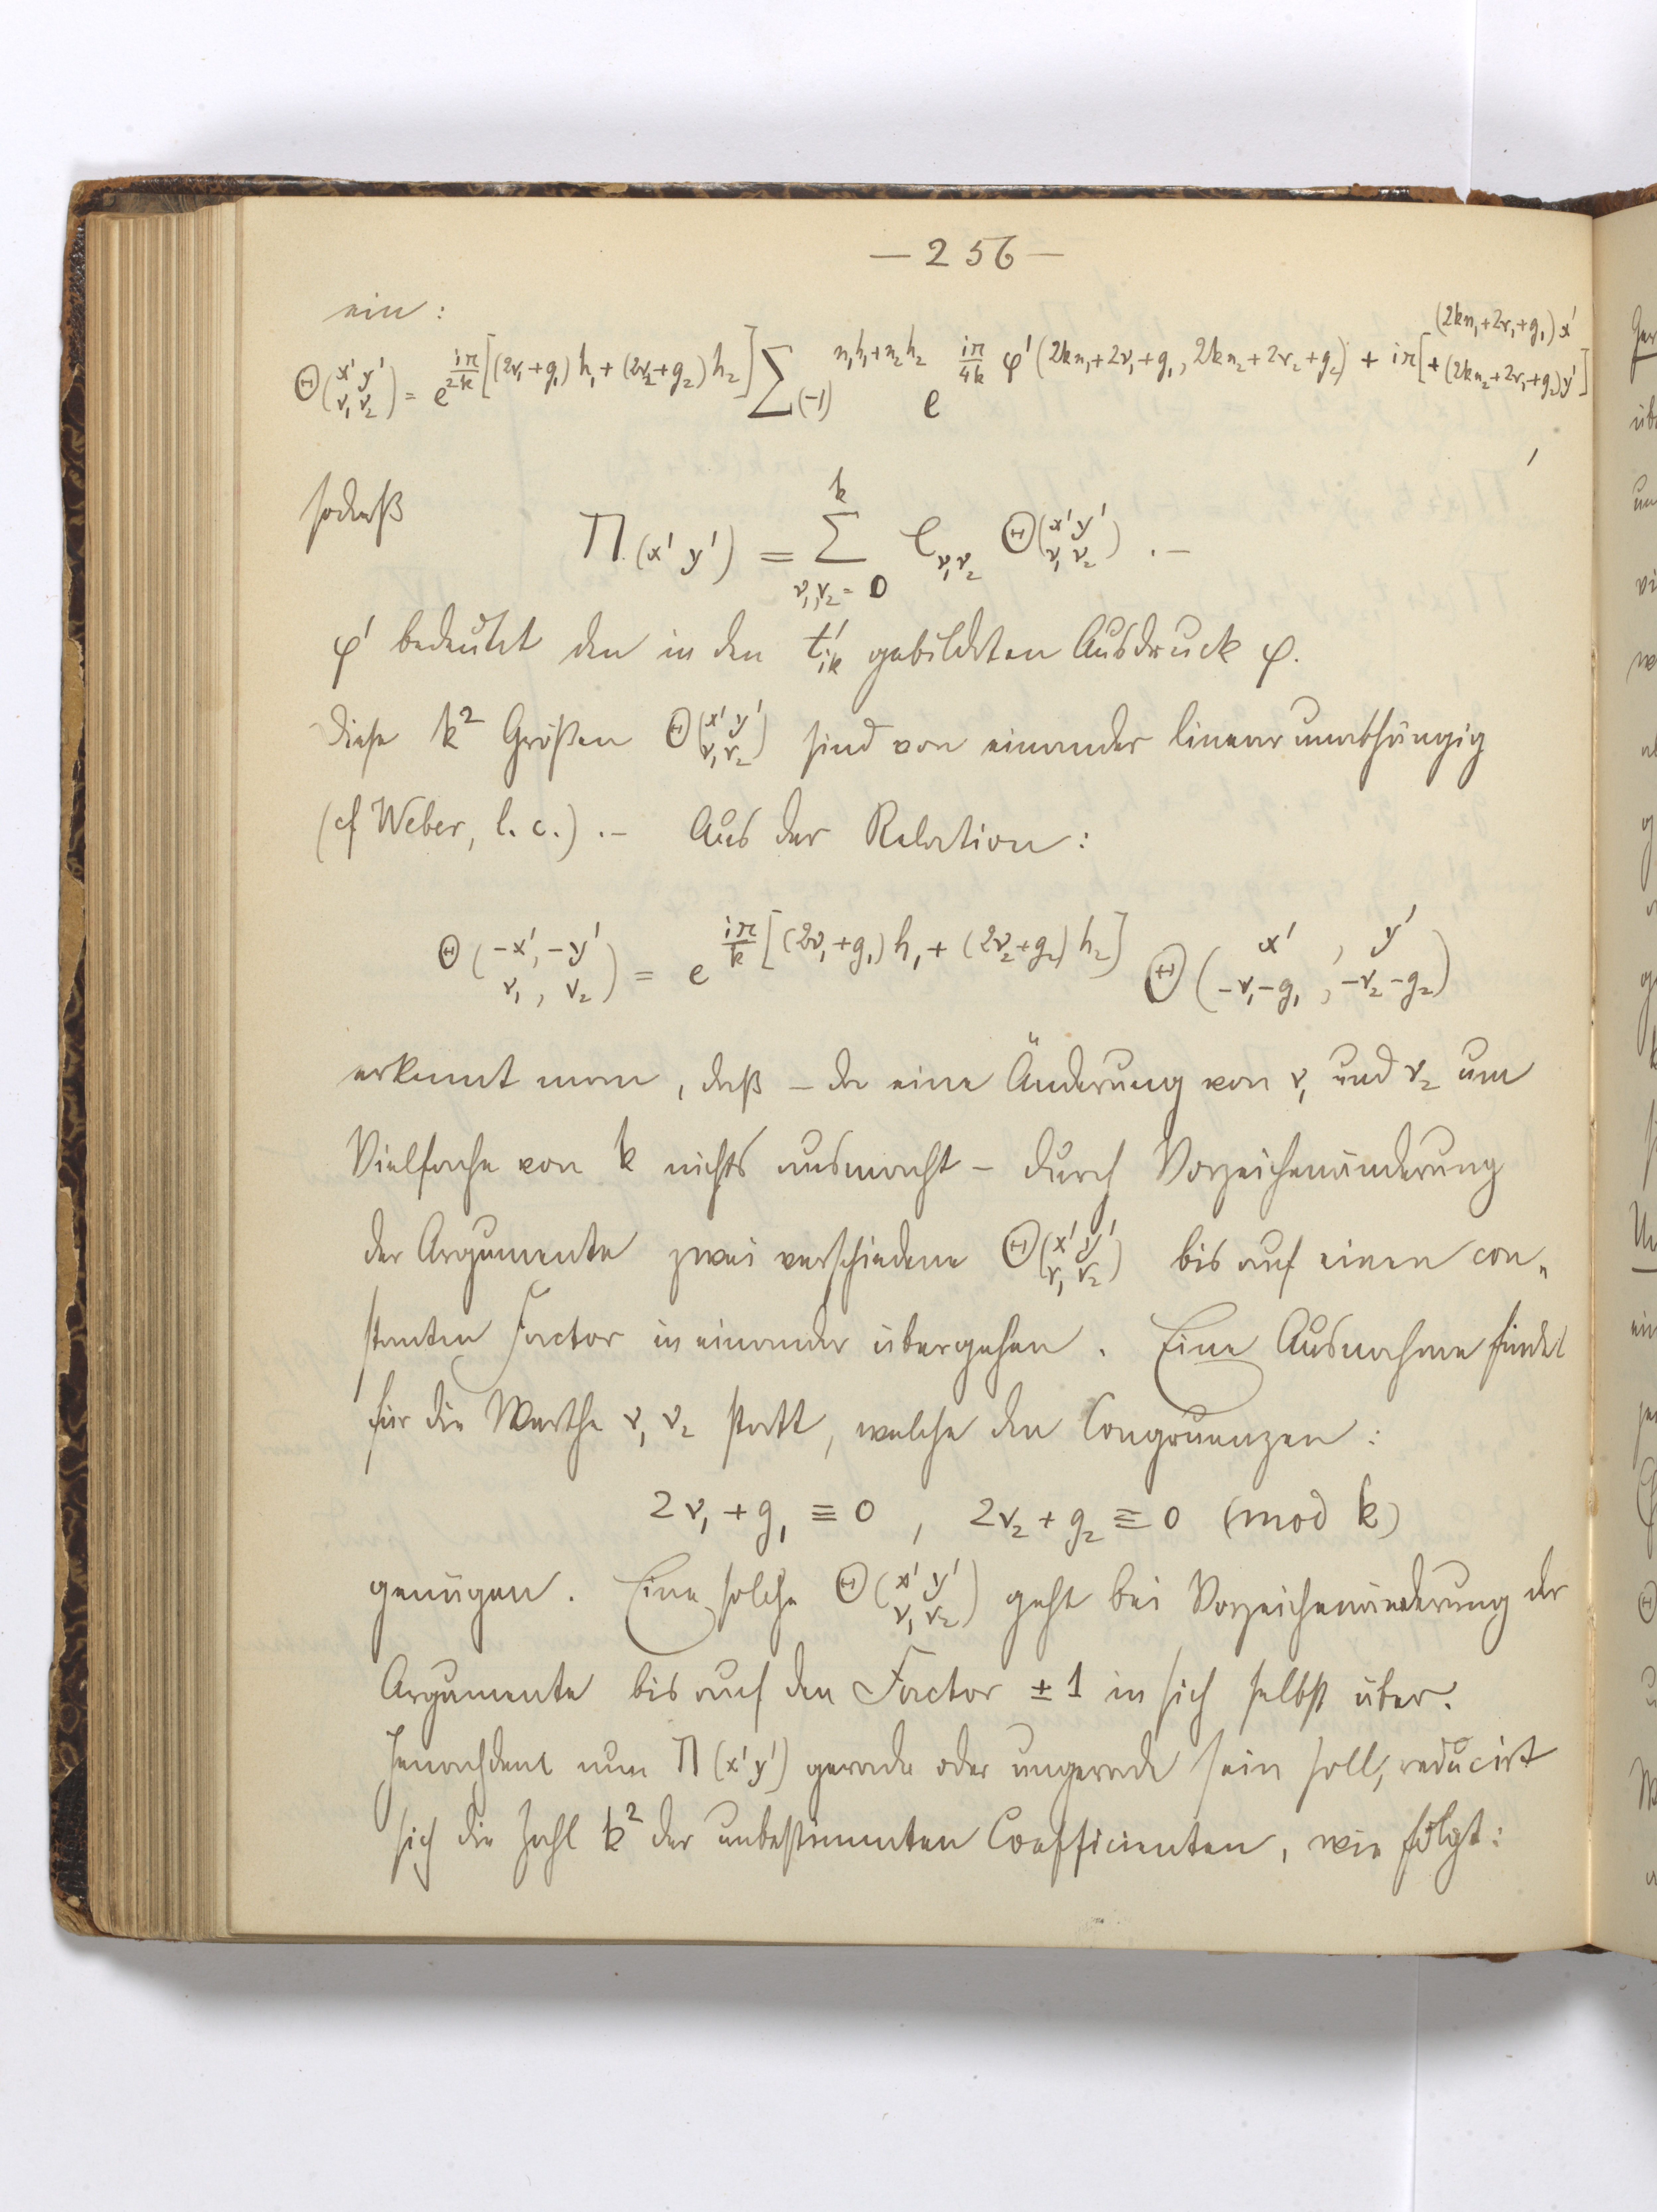 — 256 —
ein:
Θ(x' y' / ν₁ ν₂) = e^{iπ/2k [(2ν₁+g₁)h₁+(2ν₂+g₂)h₂]} Σ (-1)^{n₁h₁+n₂h₂} e^{iπ/4k φ'(2kn₁+2ν₁+g₁, 2kn₂+2ν₂+g₂) + iπ[(2kn₁+2ν₁+g₁)x' + (2kn₂+2ν₂+g₂)y']},
sodaß
Π(x' y') = Σ_{ν₁,ν₂=0}^{k} C_{ν₁ν₂} Θ(x' y' / ν₁ ν₂). —
φ' bedeutet den in den t'ᵢₖ gebildeten Ausdruck φ.
Diese k² Größen Θ(x' y' / ν₁ ν₂) sind von einander linear unabhängig
(cf Weber, l. c.). — Aus der Relation:
Θ(-x', -y' / ν₁, ν₂) = e^{iπ/k [(2ν₁+g₁)h₁+(2ν₂+g₂)h₂]} Θ(x', y' / -ν₁-g₁, -ν₂-g₂)
erkennt man, daß – da eine Änderung von ν₁ und ν₂ um
Vielfache von k nichts ausmacht – durch Vorzeichenänderung
der Argumente zwei verschiedene Θ(x' y' / ν₁ ν₂) bis auf einen con„
stanten Factor in einander übergehen. Eine Ausnahme findet
für die Werthe ν₁ ν₂ statt, welche den Congruenzen:
2ν₁ + g₁ ≡ 0 , 2ν₂ + g₂ ≡ 0 (mod k)
genügen. Eine solche Θ(x' y' / ν₁ ν₂) geht bei Vorzeichenänderung der
Argumente bis auf den Factor ± 1 in sich selbst über.
Jenachdem nun Π(x' y') gerade oder ungerade sein soll, reducirt
sich die Zahl k² der unbestimmten Coefficienten, wie folgt: